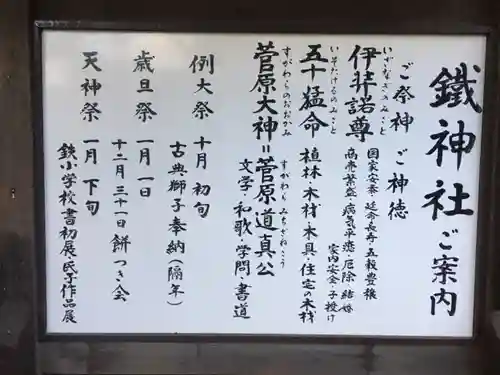 鐵神社ご案内
ご祭神　ご神徳
いざなぎのみこと
伊弉諾尊　国家安泰・延命長寿・五穀豊穣
商売繁盛・病気平癒・厄除・結婚
家内安全・子授け
いそたけるのみこと
五十猛命　植林・木材・木具・住宅の木材
すがわらのおおかみ　すがわら みちざねこう
菅原大神＝菅原道真公
文学・和歌・学問・書道
例大祭　十月 初旬
古典獅子奉納（隔年）
歳旦祭　一月一日
十二月三十一日 餅つき会
天神祭　一月 下旬
鉄小学校書初展・氏子作品展